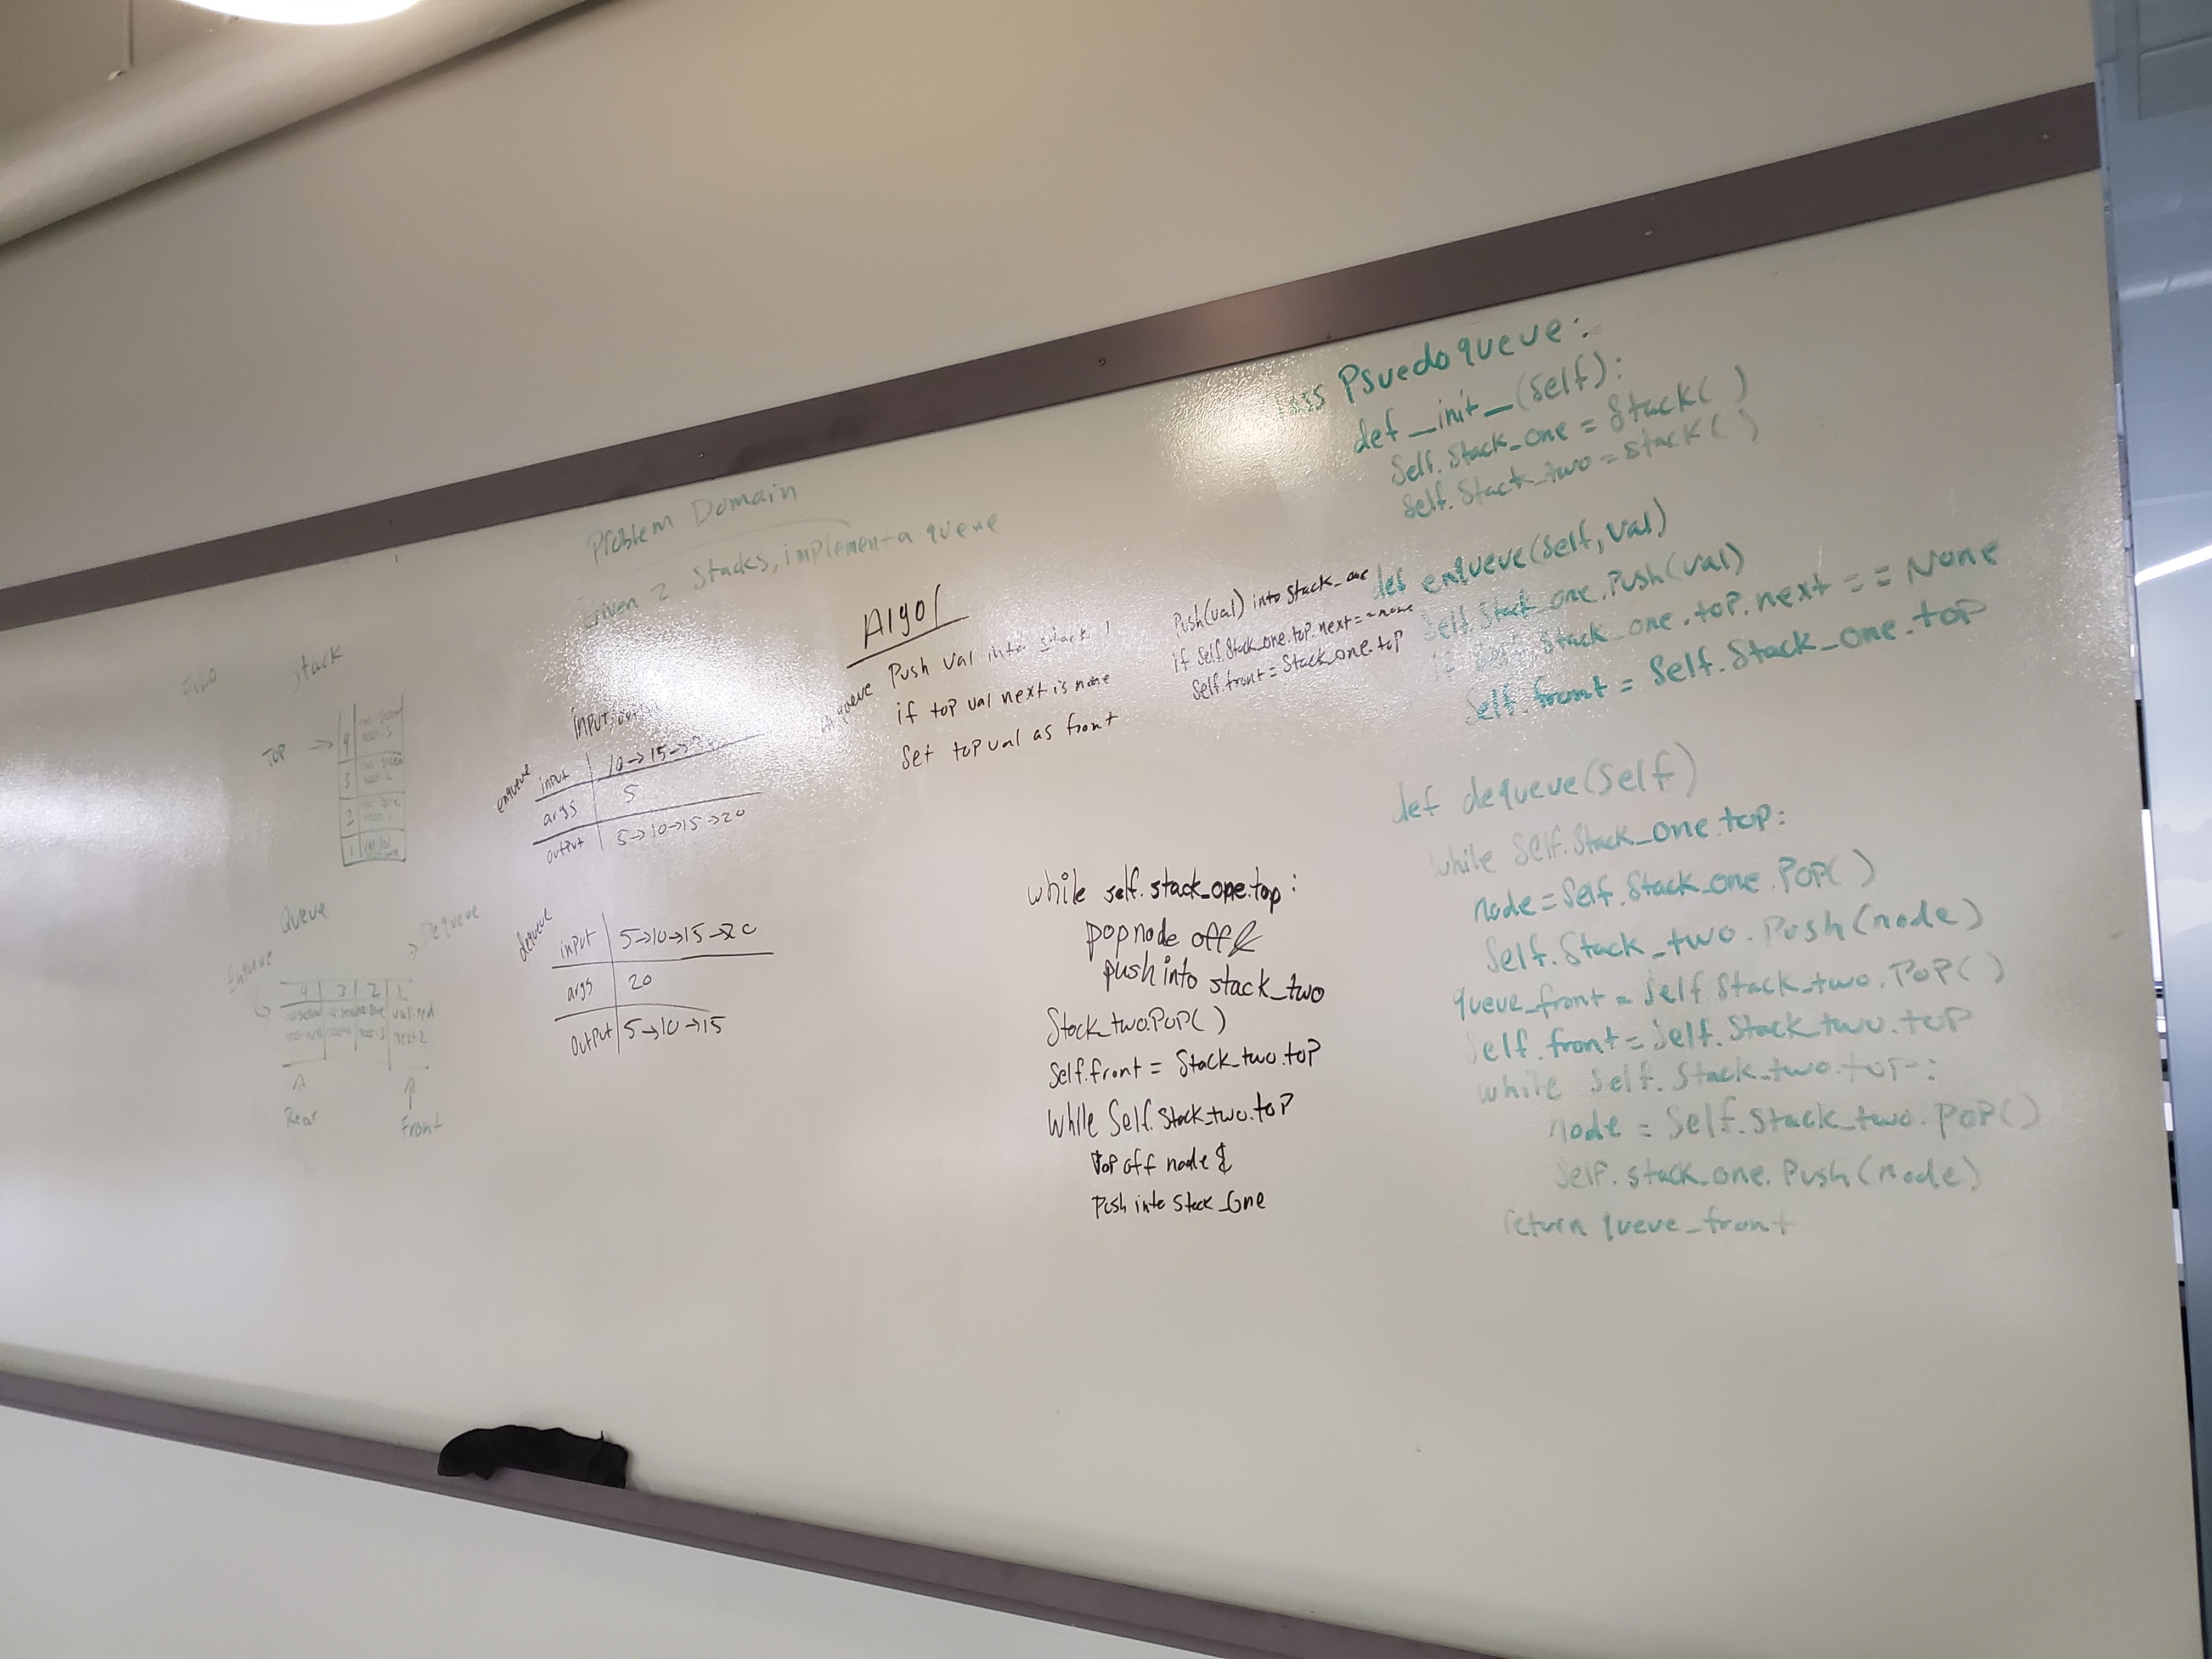 Problem Domain
Given 2 Stacks, implement a queue
FILO Stack
TOP →
4
3
2
1
Queue
Enqueue
Dequeue
4 3 2 1
val:red
next:2
Rear
Front
enqueue
input 10→15→
args 5
output 5→10→15→20
dequeue
input 5→10→15→20
args 20
output 5→10→15
Algo
enqueue Push val into stack 1
if top val next is none
Set top val as front
Push(val) into stack_one
if Self.Stack_one.top.next==none
Self.front = Stack_one.top
while self.stack_one.top:
pop node off &
push into stack_two
Stack_two.POP()
Self.front = Stack_two.top
While Self.Stack_two.top
Pop off node &
Push into Stack_One
class Psuedoqueue:
def _init_(Self):
Self.Stack_one = Stack()
Self.Stack_two = Stack()
def enqueue(Self, val)
Self.Stack_one.Push(val)
if Self.Stack_one.top.next == None
Self.front = Self.Stack_one.top
def dequeue(Self)
while Self.Stack_one.top:
node = Self.Stack_one.POP()
Self.Stack_two.Push(node)
queue_front = Self.Stack_two.POP()
Self.front = Self.Stack_two.top
while Self.Stack_two.top:
node = Self.Stack_two.POP()
Self.stack_one.Push(node)
return queue_front